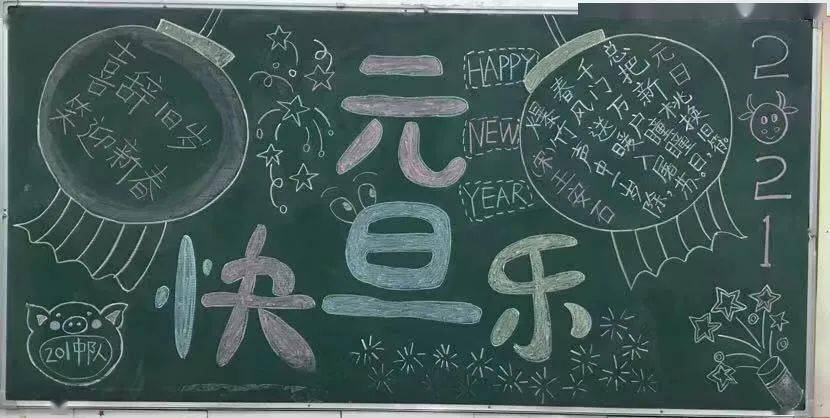 喜辞旧岁
笑迎新春
元旦
快乐
HAPPY
NEW
YEAR
元日
宋王安石
爆竹声中一岁除,
春风送暖入屠苏。
千门万户曈曈日,
总把新桃换旧符。
2021
201中队